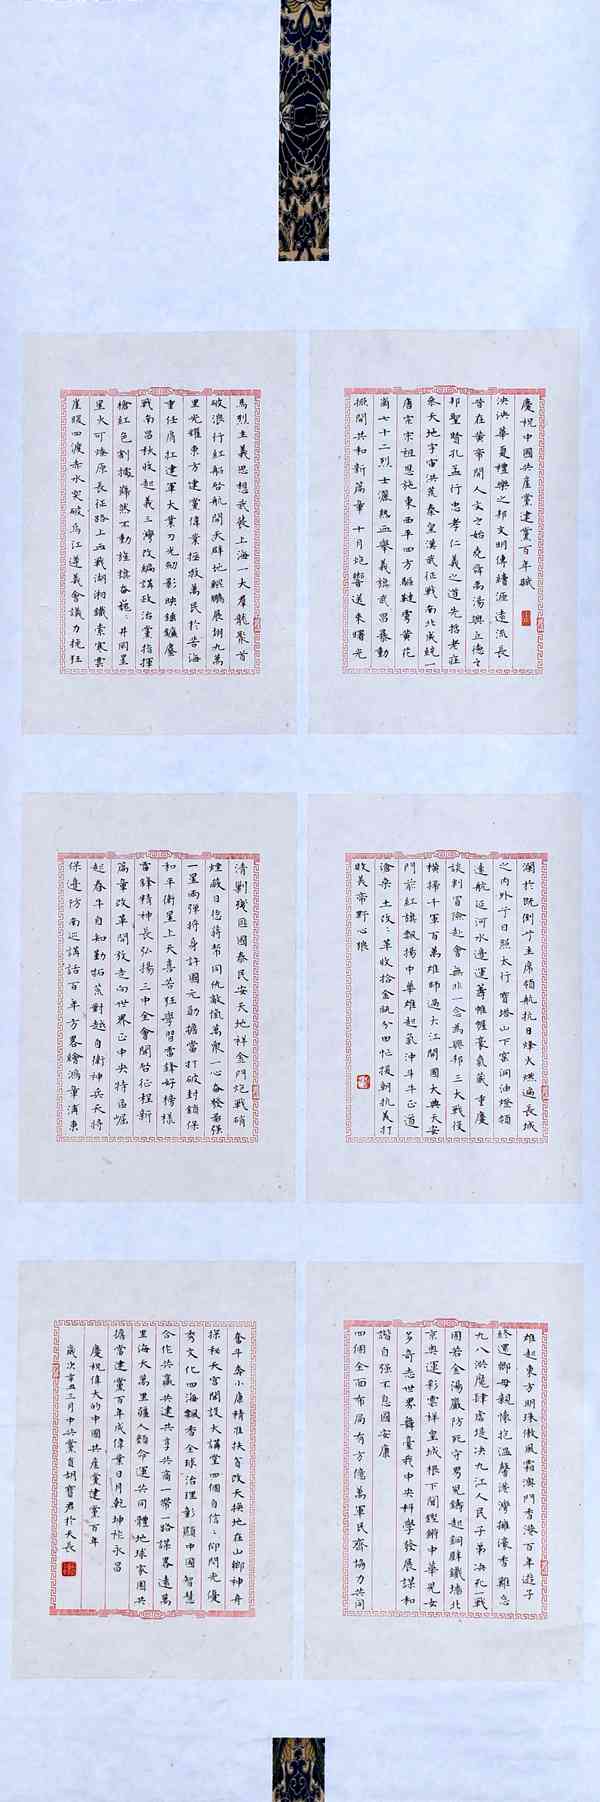 慶祝中國共産黨建黨百年賦
泱泱華夏禮樂之邦文明傳緒源遠流長
昔在黄帝開人文之始堯舜禹湯興立德之
邦聖賢孔孟行忠孝仁義之道先哲老莊
乘天地宇宙洪荒秦皇漢武征戰南北成統一
唐宗宋祖恩施東西平四方驅韃虜黄花
崗七十二烈士灑熱血舉義旗武昌暴動
掀開共和新篇章十月炮響送來曙光
馬列主義思想武裝上海一大羣龍聚首
破浪行紅船啓航開天辟地鯤鵬展翅九萬
里光耀東方建黨偉業拯救萬民於苦海
重任肩扛建軍大業刀光劒影映鍾鑪鏖
戰南昌秋收起義三灣改編講政治黨指揮
槍紅色割據巋然不動旌旗奋施井岡星
星火可燎原長征路上血戰湖湘鐵索寒雲
崖暖四渡赤水突破烏江遵義會議力挽狂
瀾於既倒毛主席領航抗日烽火燃遍長城
之内外予日照太行寶塔山下窑洞油燈領
遠航延河水邊運籌帷幄豪氣藏重慶
談判冒險赴會無非一念為興邦三大戰役
横掃千軍百萬雄師過大江開國大典天安
門前紅旗飄揚中華雄起氣沖斗牛正道
滄桑土改革收拾金甌分田忙援朝抗美打
敗美帝野心狼
清剿殘匪國泰民安天地祥金門炮戰硝
煙蔽日怨蔣幫同仇敵愾萬衆一心奋發圖强
一星兩彈將身許國元勛擔當打破封鎖保
和平衛星上天喜若狂學習雷鋒好榜樣
雷鋒精神長弘揚三中全會開啓征程新
篇章改革開放走向世界正中央特區崛
起春牛自知勤拓荒對越自衛神兵天將
保邊防南巡講話百年方略繪鴻章浦東
雄起東方明珠傲風霜澳門香港百年遊子
終還鄉母親懷抱溫馨港灣擁濠香難忘
九八洪魔肆虐堤决九江人民子弟决死一戰
固若金湯嚴防死守男兒鑄起銅牆鐵墻北
京奥運彩雲祥皇城根下聞鏗鏘中華兒女
多奇志世界舞臺我中央科學發展謀和
諧自强不息國安康
四個全面布局有方億萬軍民齊協力共同
奮斗奔小康精準扶貧改天换地在山鄉神舟
探秘天宫開設大講堂四個自信仰問光優
秀文化四海飄香全球治理彰顯中國智慧
合作共贏共建共享共商一帶一路謀畧遠萬
里海天萬里疆人類命運共同體地球家園共
擔當建黨百年成偉業日月乾坤祚永昌
慶祝偉大的中國共産黨建黨百年
歲次辛丑三月中共黨員胡寶君於天長